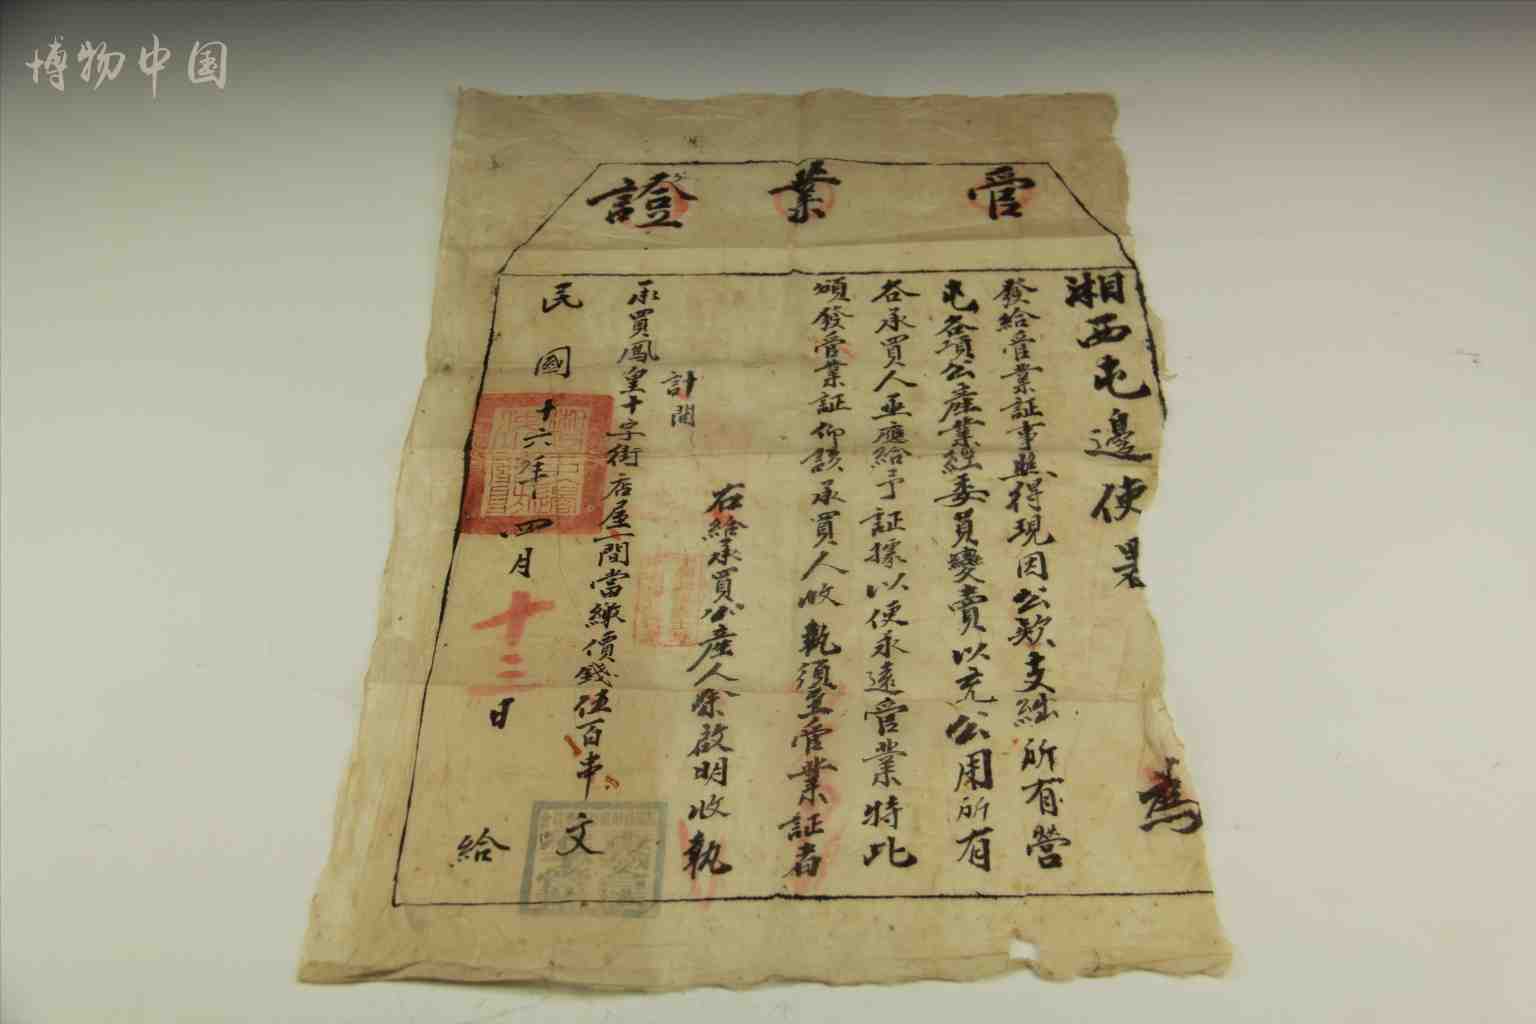 博物中国
管業證
湘西屯邊使署為
發給管業証事照得現因公欵支絀所有營
屯各項公產業經委員變賣以充公用所有
各承買人亟應給予証據以便永遠管業特此
頒發管業証仰該承買人收執須至管業証者
右給承買公產人 啟明收執
計開
承買鳳皇十字街店屋一間當繳價錢伍百串文
民國十六年四月十三日給